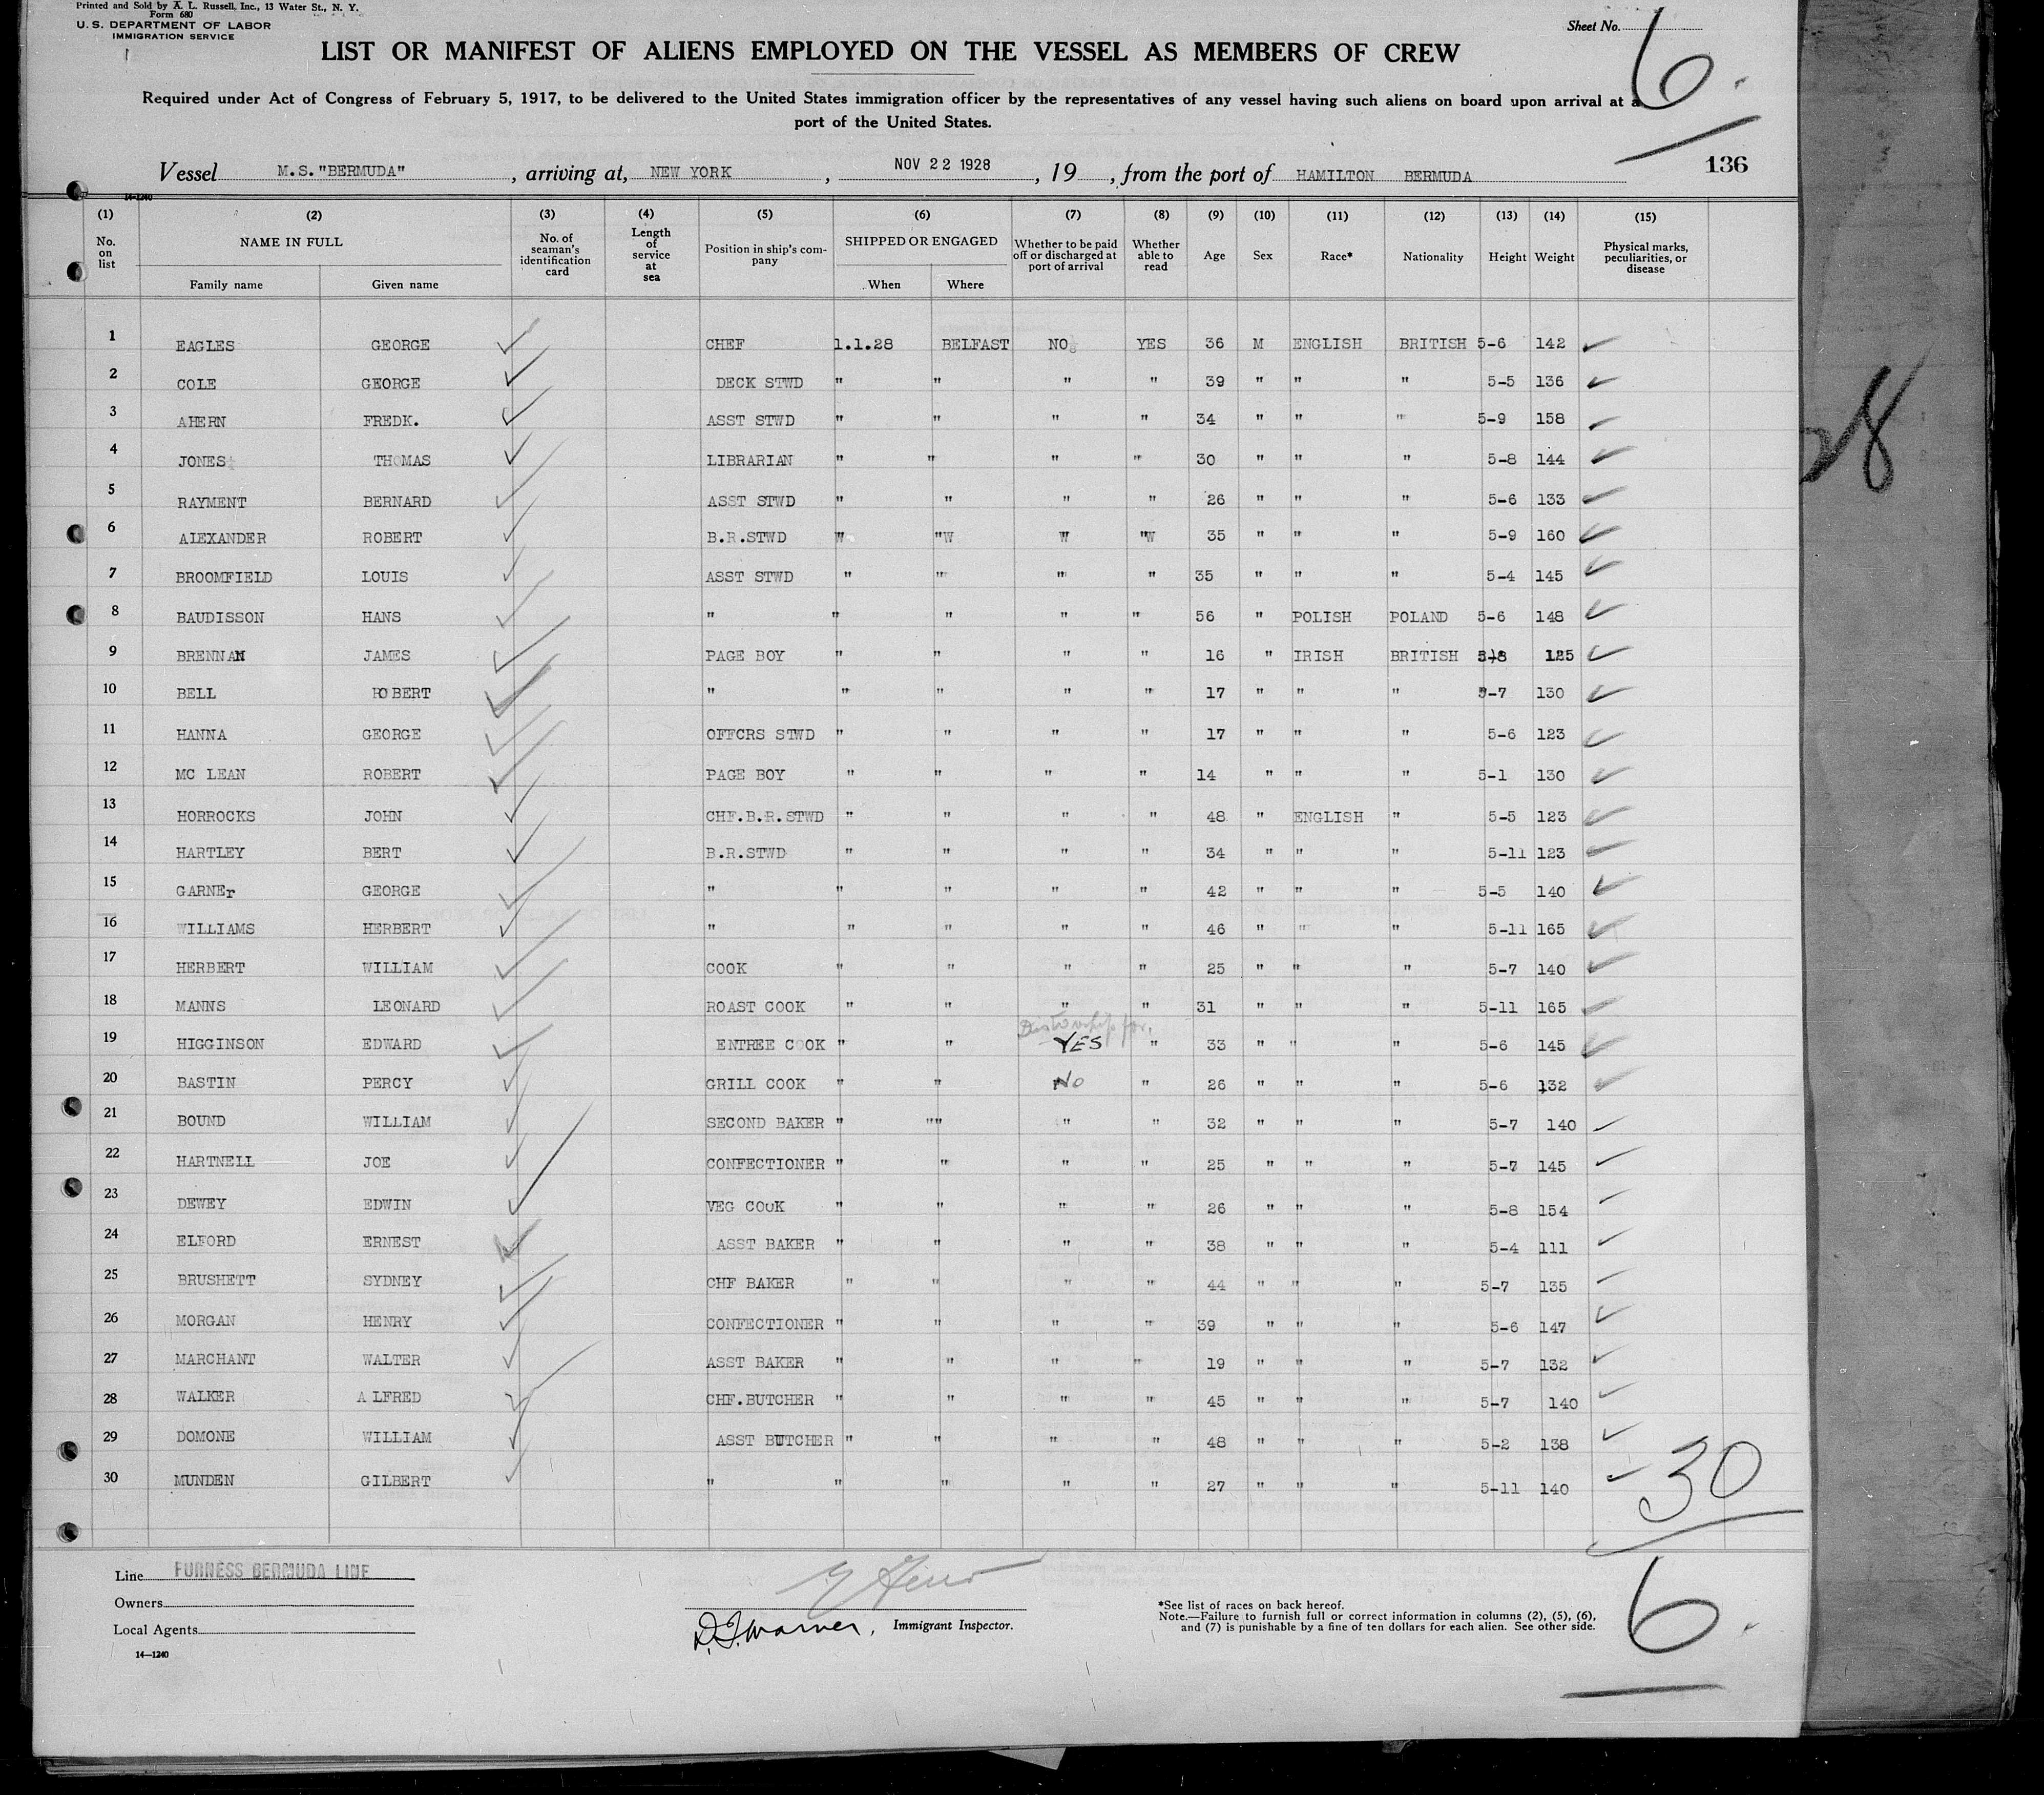 Printed and Sold by A. L. Russell, Inc., 13 Water St., N. Y.
Form 680
U. S. DEPARTMENT OF LABOR
IMMIGRATION SERVICE
Sheet No. 6.
LIST OR MANIFEST OF ALIENS EMPLOYED ON THE VESSEL AS MEMBERS OF CREW
Required under Act of Congress of February 5, 1917, to be delivered to the United States immigration officer by the representatives of any vessel having such aliens on board upon arrival at a
port of the United States.
Vessel M.S."BERMUDA", arriving at, NEW YORK, NOV 22 1928, 19 , from the port of HAMILTON BERMUDA
136
14-1240
(1) (2) (3) (4) (5) (6) (7) (8) (9) (10) (11) (12) (13) (14) (15)
No. on list NAME IN FULL Family name Given name No. of seaman's identification card Length of service at sea Position in ship's company SHIPPED OR ENGAGED When Where Whether to be paid off or discharged at port of arrival Whether able to read Age Sex Race* Nationality Height Weight Physical marks, peculiarities, or disease
1 EAGLES GEORGE CHEF 1.1.28 BELFAST NO YES 36 M ENGLISH BRITISH 5-6 142
2 COLE GEORGE DECK STWD " " " " 39 " " " 5-5 136
3 AHERN FREDK. ASST STWD " " " " 34 " " " 5-9 158
4 JONES THOMAS LIBRARIAN " " " " 30 " " " 5-8 144
5 RAYMENT BERNARD ASST STWD " " " " 26 " " " 5-6 133
6 ALEXANDER ROBERT B.R.STWD " " " " 35 " " " 5-9 160
7 BROOMFIELD LOUIS ASST STWD " " " " 35 " " " 5-4 145
8 BAUDISSON HANS " " " " " 56 " POLISH POLAND 5-6 148
9 BRENNAN JAMES PAGE BOY " " " " 16 " IRISH BRITISH 125
10 BELL ROBERT " " " " " 17 " " " 5-7 130
11 HANNA GEORGE OFFCRS STWD " " " " 17 " " " 5-6 123
12 MC LEAN ROBERT PAGE BOY " " " " 14 " " " 5-1 130
13 HORROCKS JOHN CHF.B.R.STWD " " " " 48 " ENGLISH " 5-5 123
14 HARTLEY BERT B.R.STWD " " " " 34 " " " 5-11 123
15 GARNEr GEORGE " " " " " 42 " " " 5-5 140
16 WILLIAMS HERBERT " " " " " 46 " " " 5-11 165
17 HERBERT WILLIAM COOK " " " " 25 " " " 5-7 140
18 MANNS LEONARD ROAST COOK " " " " 31 " " " 5-11 165
19 HIGGINSON EDWARD ENTREE COOK " " YES " 33 " " " 5-6 145
20 BASTIN PERCY GRILL COOK " " No " 26 " " " 5-6 132
21 BOUND WILLIAM SECOND BAKER " "" " " 32 " " " 5-7 140
22 HARTNELL JOE CONFECTIONER " " " " 25 " " " 5-7 145
23 DEWEY EDWIN VEG COOK " " " " 26 " " " 5-8 154
24 ELFORD ERNEST ASST BAKER " " " " 38 " " " 5-4 111
25 BRUSHETT SYDNEY CHF BAKER " " " " 44 " " " 5-7 135
26 MORGAN HENRY CONFECTIONER " " " " 39 " " " 5-6 147
27 MARCHANT WALTER ASST BAKER " " " " 19 " " " 5-7 132
28 WALKER ALFRED CHF.BUTCHER " " " " 45 " " " 5-7 140
29 DOMONE WILLIAM ASST BUTCHER " " " " 48 " " " 5-2 138
30 MUNDEN GILBERT " " " " " 27 " " " 5-11 140
30
28
Line FURNESS BERMUDA LINE
Owners
Local Agents
14—1240
D.J. Warner, Immigrant Inspector.
*See list of races on back hereof.
Note.—Failure to furnish full or correct information in columns (2), (5), (6),
and (7) is punishable by a fine of ten dollars for each alien. See other side.
6.